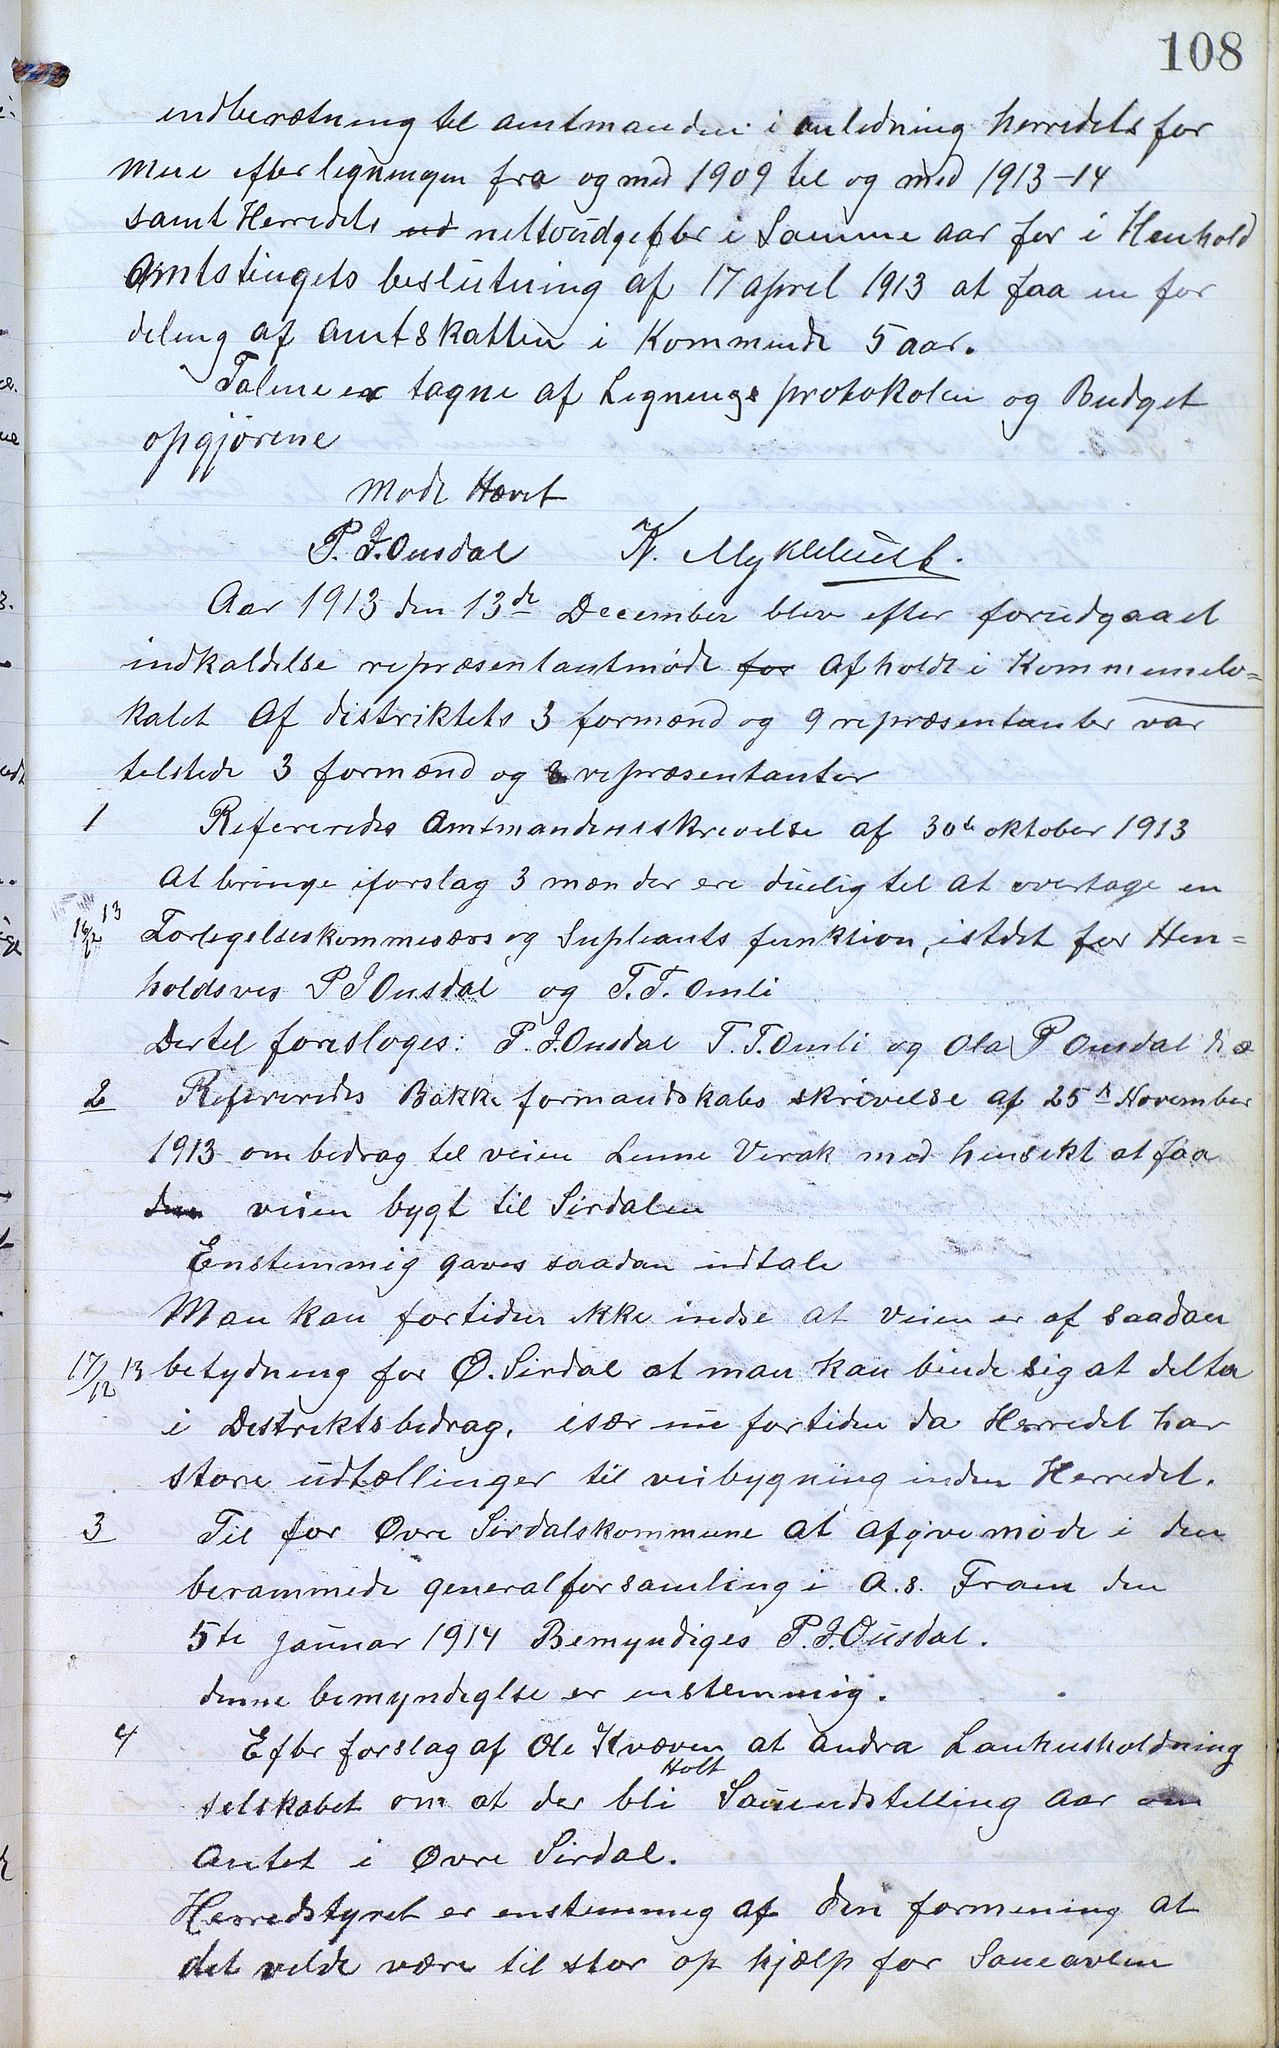 108
indberætning til amtmanden i anledning herredets for
mue efter ligningen fra og med 1909 til og med 1913-14
samt Herredets ud nettoudgifter i Samme aar for i Henhold
Amtstingets beslutning af 17 april 1913 at faa en for
deling af amtskatten i Kommende 5 aar.
Talene er tagne af Lignings protokolen og Budget
opgjørene
Møde Hævet
P. J. Ousdal K. Myklebust.
Aar 1913 den 13de December blev efter forudgaaet
indkaldelse repræsentantmøde for afholdt i Kommunelo=
kalet Af distriktets 3 formænd og 9 repræsentanter var
tilstede 3 formænd og 8 repræsentanter
1 Refereredes Amtmandensskrivelse af 30te oktober 1913
At bringe iforslag 3 mæn der ere duelig til at overtage en
16/12 13 Forligelseskommisærs og Supleants funktion, istdet for Hen=
holdsvis P J Ousdal og T. T. Omli
Dertil foresloges: P. J. Ousdal T. T. Omli og Ola P Ousdal
2 Refereredes Bakke formandskabs skrivelse af 25de November
1913 om bedrag til veien Lunne Virak med hensikt at faa
den veien bygt til Sirdalen
Enstemmig gaves saadan udtale
Man kan fortiden ikke indse at Veien er af saadan
17/12 13 betydning for Ø. Sirdal at man kan binde sig at delta
i Distriktsbedrag, især nu fortiden da Herredet har
store udtællinger til veibygning inden Herredet.
3 Til for Øvre Sirdalskommune at afgive møde i den
berammede generalforsamling i A. s. Fram den
5te januar 1914 Bemyndiges P. J. Ousdal.
denne bemyndiglse er enstemmig.
4 Efter forslag af Ole Kvæven at andra Lanhusholdning
Holt
selskabet om at der bli Sauudstilling aar om
antet i Øvre Sirdal.
Herredstyret er enstemmig af den formening at
det vilde være til stor op hjælp for Saueavlen